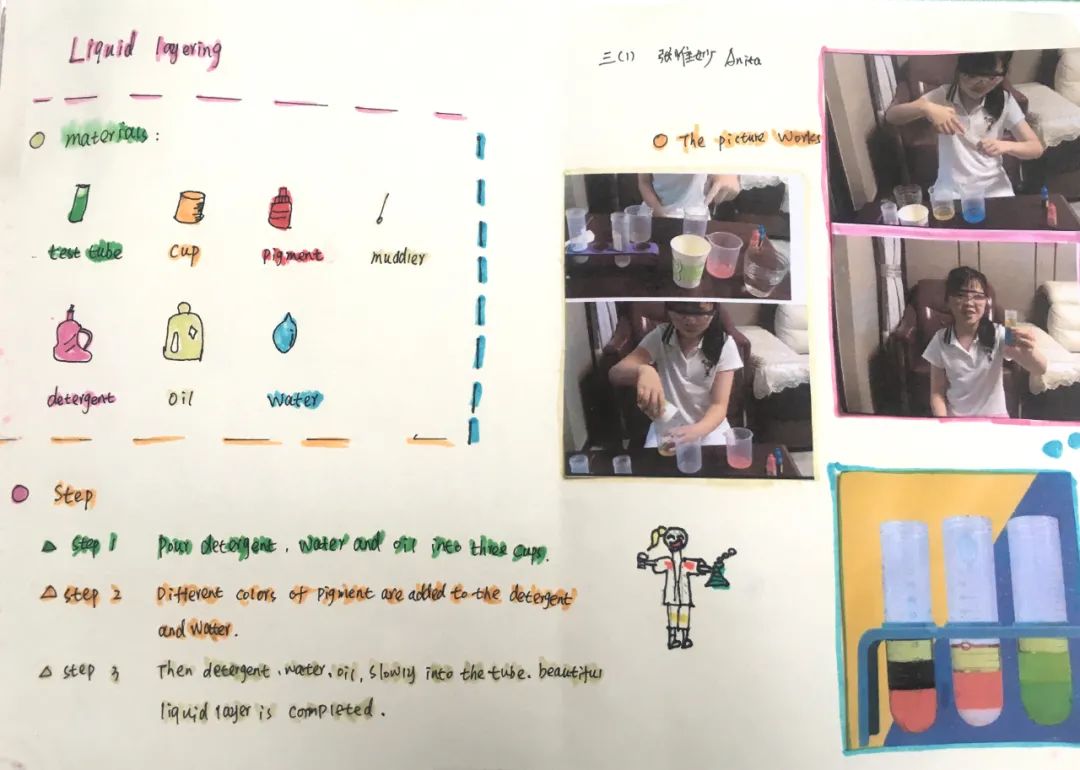 Liquid layering
三(1) 张雅妙 Anita
materials:
The picture works
test tube cup pigment muddler
detergent oil water
Step
step 1 Pour detergent, water and oil into three cups.
step 2 Different colors of pigment are added to the detergent
and water.
step 3 Then detergent, water, oil, slowly into the tube. beautiful
liquid layer is completed.